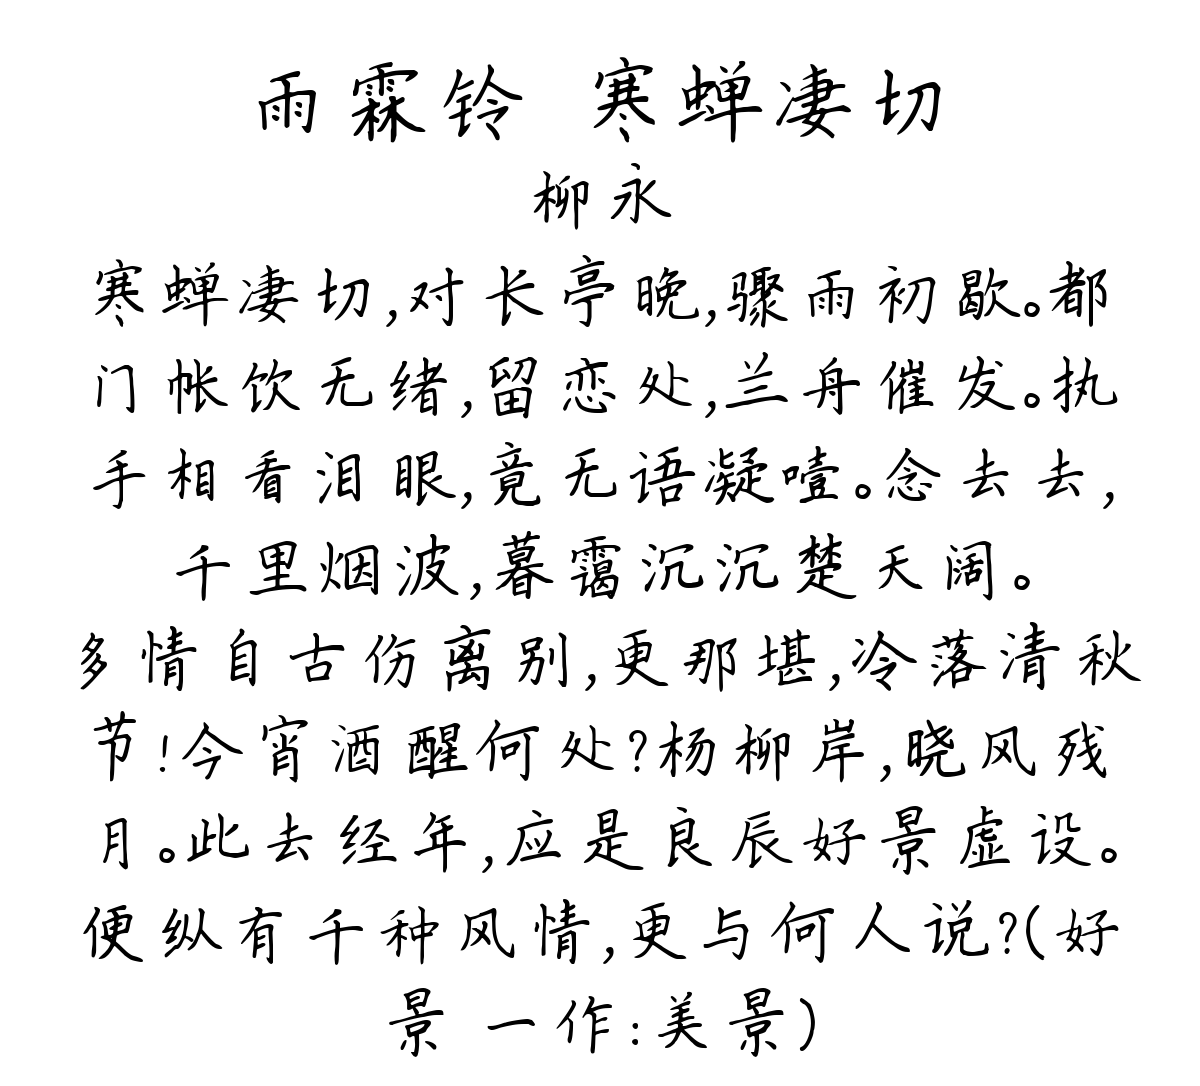 雨霖铃 寒蝉凄切
柳永
寒蝉凄切,对长亭晚,骤雨初歇。都
门帐饮无绪,留恋处,兰舟催发。执
手相看泪眼,竟无语凝噎。念去去,
千里烟波,暮霭沉沉楚天阔。
多情自古伤离别,更那堪,冷落清秋
节!今宵酒醒何处?杨柳岸,晓风残
月。此去经年,应是良辰好景虚设。
便纵有千种风情,更与何人说?(好
景 一作:美景)